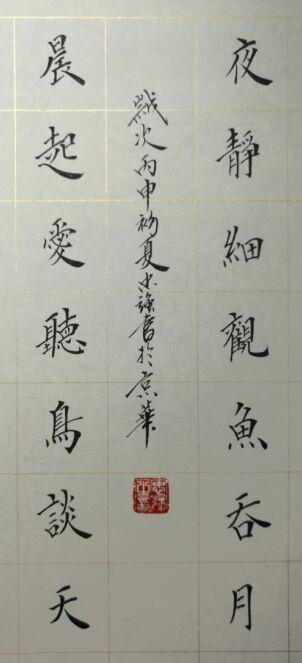 夜靜細觀魚吞月
晨起愛聽鳥談天
歲次丙申初夏忠強書於京華